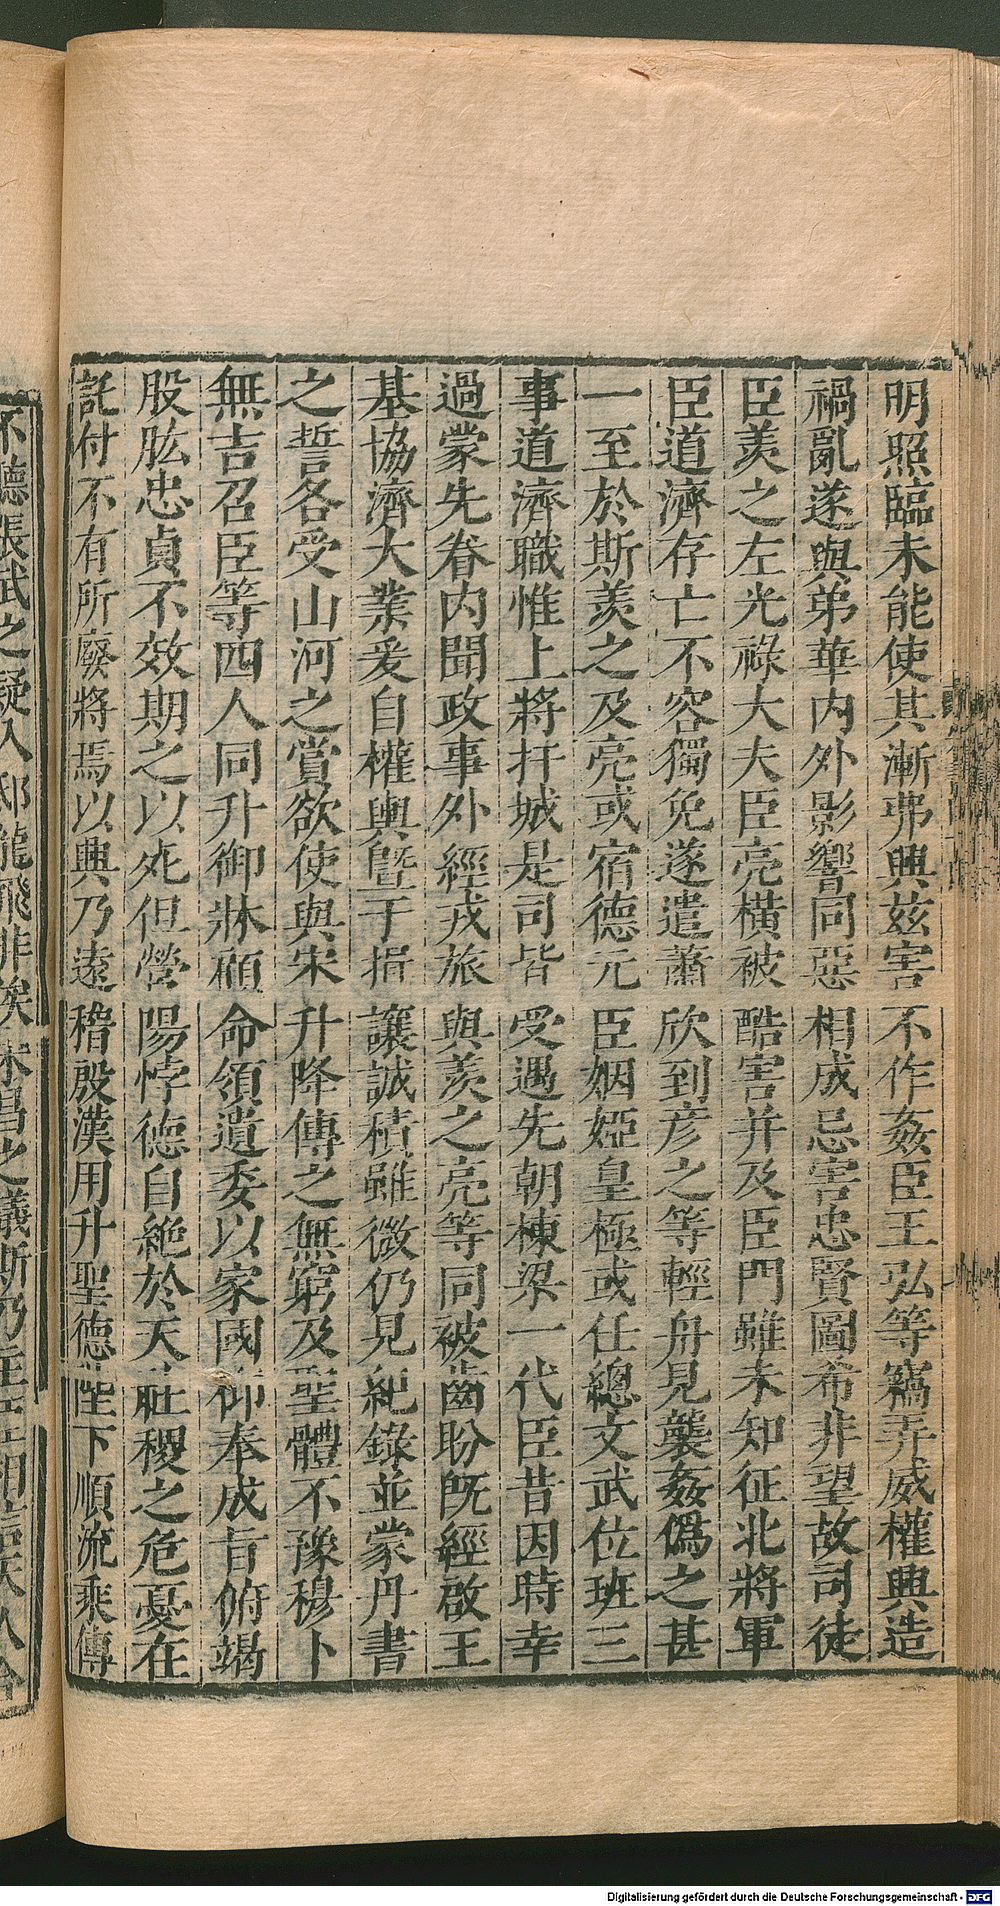 明照臨未能使其漸弗興茲害不作姦臣王弘等竊弄威權興造
禍亂遂與弟華內外影響同惡相成忌害忠賢圖希非望故司徒
臣羨之左光祿大夫臣亮橫被酷害并及臣門雖未知征北將軍
臣道濟存亡不容獨免遂遣蕭欣到彥之等輕舟見襲姦僞之甚
一至於斯羨之及亮或宿德元臣姻婭皇極或任總文武位班三
事道濟職惟上將扞城是司皆受遇先朝棟梁一代臣昔因時幸
過蒙先眷內聞政事外經戎旅與羨之亮等同被齒盼既經啟王
基協濟大業爰自權輿暨于揖讓誠積雖微仍見紀錄並蒙丹書
之誓各受山河之賞欲使與宋升降傳之無窮及聖體不豫穆卜
無吉召臣等四人同升御牀顧命領遺委以家國仰奉成旨俯竭
股肱忠貞不效期之以死但營陽悖德自絕於天社稷之危憂在
託付不有所廢將焉以興乃遠稽殷漢用升聖德陛下順流乘傳
張武之疑入邸龍飛非俟宋昌之議斯乃
Digitalisierung gefördert durch die Deutsche Forschungsgemeinschaft - DFG